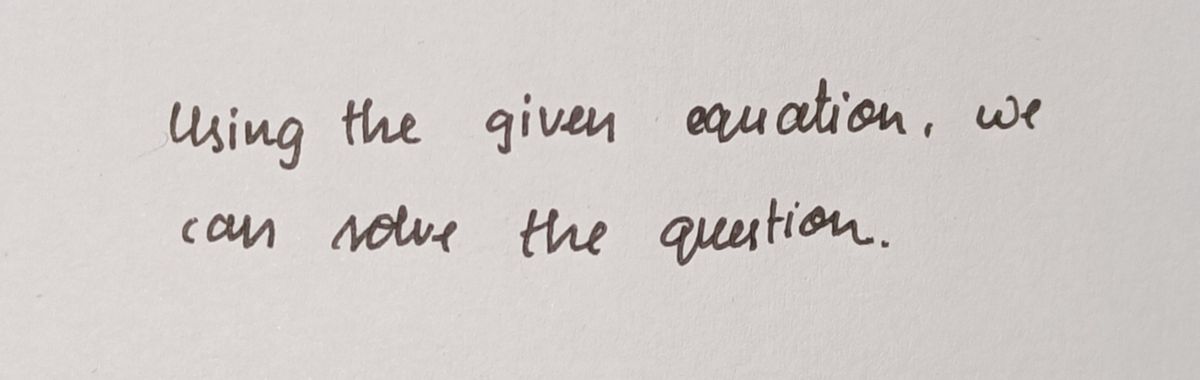 Using the given equation, we
can solve the question.